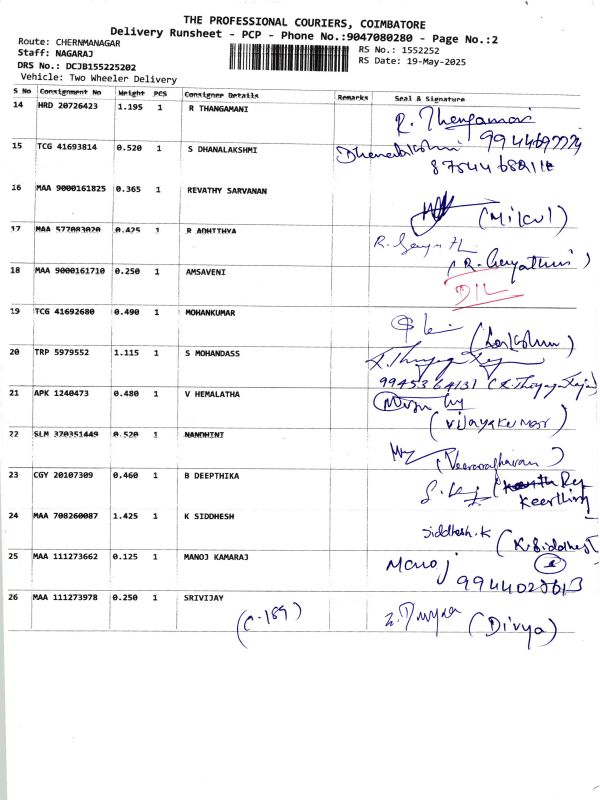 THE PROFESSIONAL COURIERS, COIMBATORE
Delivery Runsheet - PCP - Phone No.:9047080280 - Page No.:2
Route: CHERNMANAGAR
Staff: NAGARAJ
DRS No.: DCJB155225202
Vehicle: Two Wheeler Delivery
RS No.: 1552252
RS Date: 19-May-2025
S No Consignment No Weight PCS Consignee Details Remarks Seal & Signature
14 HRD 20726423 1.195 1 R THANGAMANI
R. Thangamani
15 TCG 41693814 0.520 1 S DHANALAKSHMI
Dhanalakshmi
16 MAA 9000161825 0.365 1 REVATHY SARVANAN
17 MAA 577083020 0.425 1 R ADHITHYA
(R. Gayathri)
18 MAA 9000161710 0.250 1 AMSAVENI
D/L
19 TCG 41692680 0.490 1 MOHANKUMAR
20 TRP 5979552 1.115 1 S MOHANDASS
9945364131
21 APK 1240473 0.480 1 V HEMALATHA
(Vijayakumar)
22 SLM 370351449 0.520 1 NANDHINI
(Veeraraghavan)
23 CGY 20107309 0.460 1 B DEEPTHIKA
24 MAA 708260087 1.425 1 K SIDDHESH
Siddhesh.K (K.Siddhesh)
25 MAA 111273662 0.125 1 MANOJ KAMARAJ
Manoj
26 MAA 111273978 0.250 1 SRIVIJAY
(C-189) (Divya)